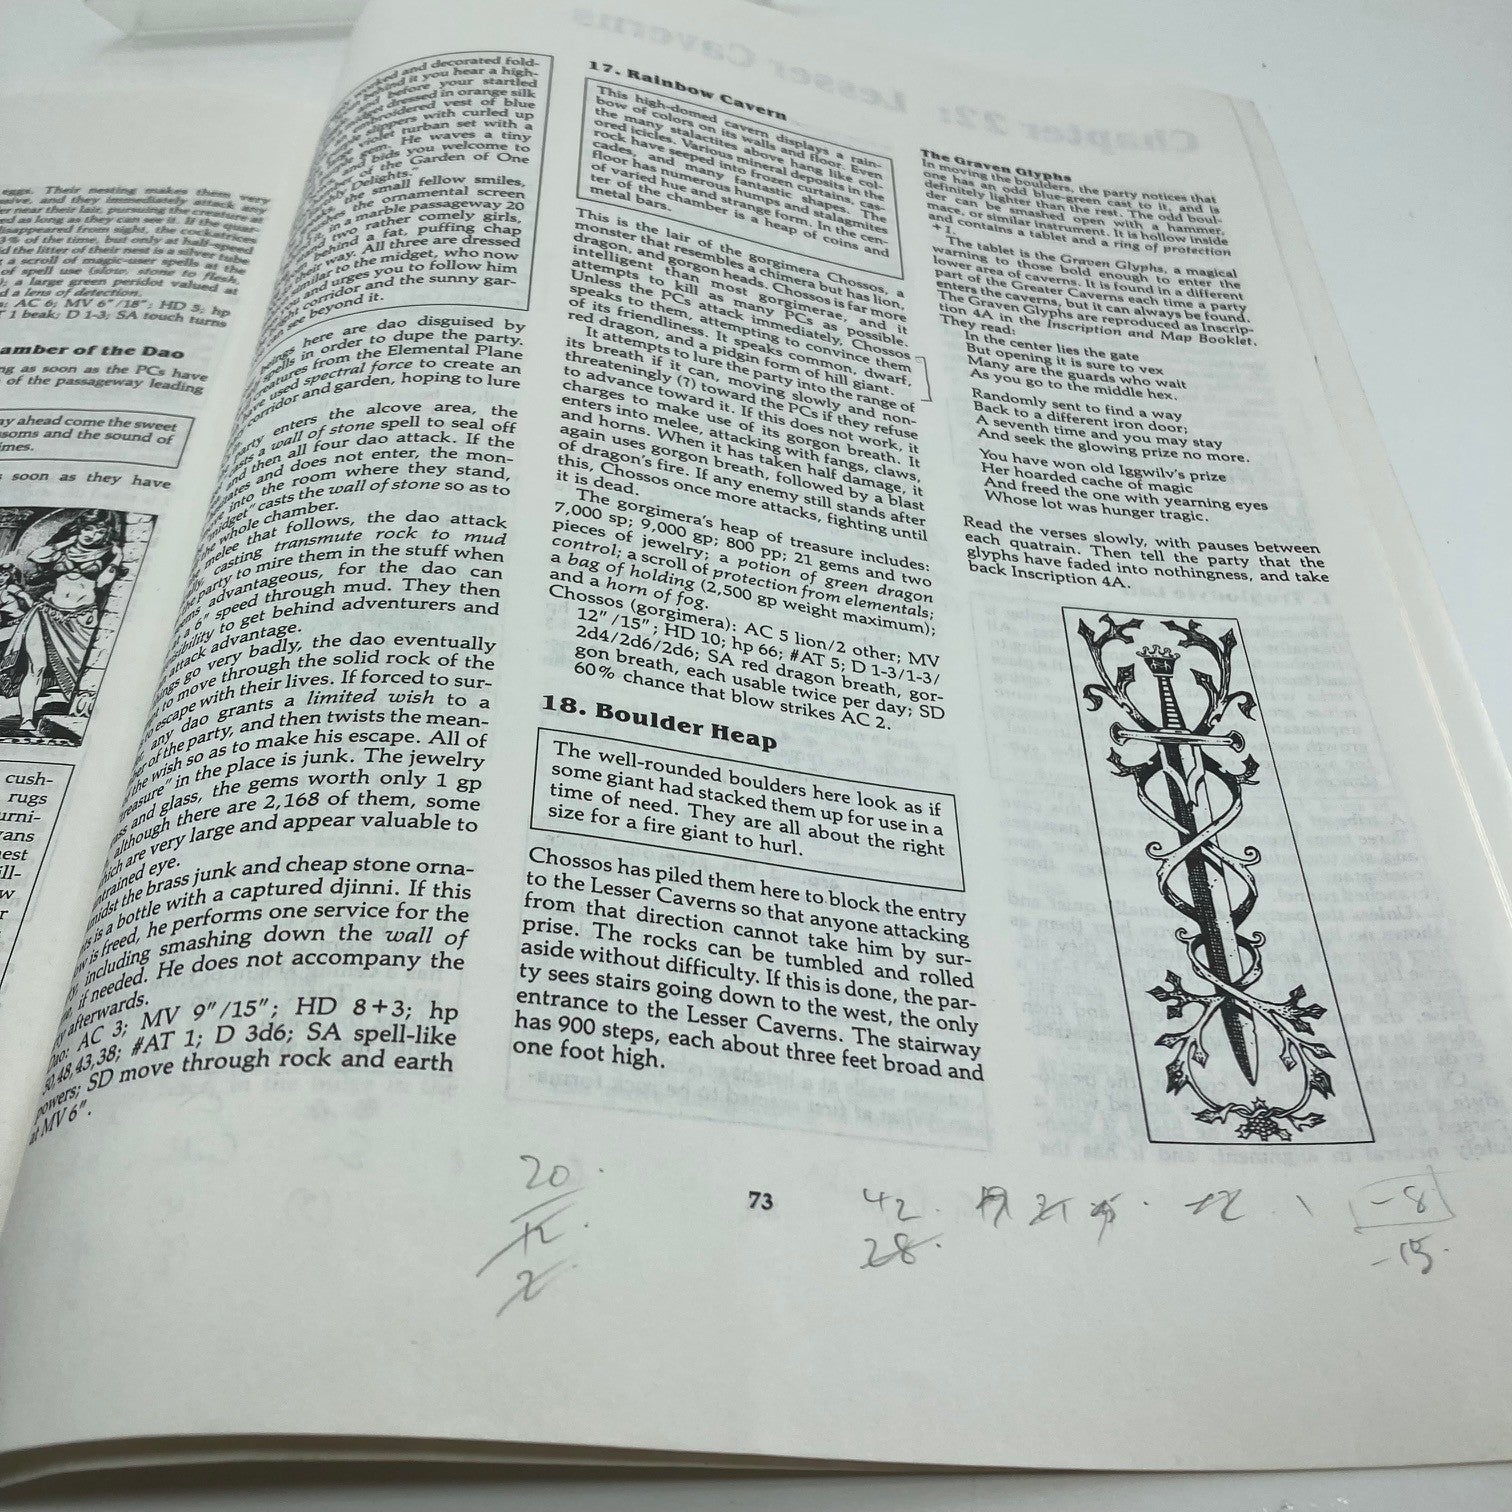 eggs. Their nesting makes them very
and they immediately attack any
near their lair, pursuing the creature as
as long as they can see it. If the quar-
disappeared from sight, the cockatrices
of the time, but only at half-speed
the litter of their nest is a silver tube
a scroll of magic-user spells, at the
of spell use (slow, stone to flesh,
a large green peridot valued at
a lens of detection.
AC 6; MV 6"/18"; HD 5; hp
1 beak; D 1-3; SA touch turns
of the Dao
as soon as the PCs have
of the passageway leading
ahead come the sweet
and the sound of
soon as they have
cush-
rugs
and decorated fold-
behind it you hear a high-
and before your startled
dressed in orange silk
embroidered vest of blue
slippers with curled up
violet turban set with a
gem. He waves a tiny
and bids you welcome to
of the Garden of One
Delights."
small fellow smiles,
the ornamental screen
a marble passageway 20
two rather comely girls,
behind a fat, puffing chap
their way. All three are dressed
similar to the midget, who now
and urges you to follow him
corridor and the sunny gar-
see beyond it.
beings here are dao disguised by
spells in order to dupe the party.
creatures from the Elemental Plane
have used spectral force to create an
corridor and garden, hoping to lure
party enters the alcove area, the
casts a wall of stone spell to seal off
and then all four dao attack. If the
and does not enter, the mon-
into the room where they stand,
"midget" casts the wall of stone so as to
the whole chamber.
melee that follows, the dao attack
casting transmute rock to mud
the party to mire them in the stuff when
advantageous, for the dao can
a 6" speed through mud. They then
to get behind adventurers and
attack advantage.
things go very badly, the dao eventually
to move through the solid rock of the
to escape with their lives. If forced to sur-
any dao grants a limited wish to a
of the party, and then twists the mean-
the wish so as to make his escape. All of
"treasure" in the place is junk. The jewelry
and glass, the gems worth only 1 gp
although there are 2,168 of them, some
which are very large and appear valuable to
untrained eye.
Amidst the brass junk and cheap stone orna-
is a bottle with a captured djinni. If this
is freed, he performs one service for the
including smashing down the wall of
if needed. He does not accompany the
party afterwards.
Dao: AC 3; MV 9"/15"; HD 8+3; hp
50,48,43,38; #AT 1; D 3d6; SA spell-like
powers; SD move through rock and earth
at MV 6".
17. Rainbow Cavern
This high-domed cavern displays a rain-
bow of colors on its walls and floor. Even
the many stalactites above hang like col-
ored icicles. Various mineral deposits in the
rock have seeped into frozen curtains, cas-
cades, and many fantastic shapes. The
floor has numerous humps and stalagmites
of varied hue and strange form. In the cen-
ter of the chamber is a heap of coins and
metal bars.
This is the lair of the gorgimera Chossos, a
monster that resembles a chimera but has lion,
dragon, and gorgon heads. Chossos is far more
intelligent than most gorgimerae, and it
attempts to kill as many PCs as possible.
Unless the PCs attack immediately, Chossos
speaks to them, attempting to convince them
of its friendliness. It speaks common, dwarf,
red dragon, and a pidgin form of hill giant.
It attempts to lure the party into the range of
its breath if it can, moving slowly and non-
threateningly (?) toward the PCs if they refuse
to advance toward it. If this does not work, it
charges to make use of its gorgon breath. It
enters into melee, attacking with fangs, claws,
and horns. When it has taken half damage, it
again uses gorgon breath, followed by a blast
of dragon's fire. If any enemy still stands after
this, Chossos once more attacks, fighting until
it is dead.
The gorgimera's heap of treasure includes:
7,000 sp; 9,000 gp; 800 pp; 21 gems and two
pieces of jewelry; a potion of green dragon
control; a scroll of protection from elementals;
a bag of holding (2,500 gp weight maximum);
and a horn of fog.
Chossos (gorgimera): AC 5 lion/2 other; MV
12"/15"; HD 10; hp 66; #AT 5; D 1-3/1-3/
2d4/2d6/2d6; SA red dragon breath, gor-
gon breath, each usable twice per day; SD
60% chance that blow strikes AC 2.
18. Boulder Heap
The well-rounded boulders here look as if
some giant had stacked them up for use in a
time of need. They are all about the right
size for a fire giant to hurl.
Chossos has piled them here to block the entry
to the Lesser Caverns so that anyone attacking
from that direction cannot take him by sur-
prise. The rocks can be tumbled and rolled
aside without difficulty. If this is done, the par-
ty sees stairs going down to the west, the only
entrance to the Lesser Caverns. The stairway
has 900 steps, each about three feet broad and
one foot high.
The Graven Glyphs
In moving the boulders, the party notices that
one has an odd blue-green cast to it, and is
definitely lighter than the rest. The odd boul-
der can be smashed open with a hammer,
mace, or similar instrument. It is hollow inside
and contains a tablet and a ring of protection
+1.
The tablet is the Graven Glyphs, a magical
warning to those bold enough to enter the
lower area of caverns. It is found in a different
part of the Greater Caverns each time a party
enters the caverns, but it can always be found.
The Graven Glyphs are reproduced as Inscrip-
tion 4A in the Inscription and Map Booklet.
They read:
In the center lies the gate
But opening it is sure to vex
Many are the guards who wait
As you go to the middle hex.
Randomly sent to find a way
Back to a different iron door;
A seventh time and you may stay
And seek the glowing prize no more.
You have won old Iggwilv's prize
Her hoarded cache of magic
And freed the one with yearning eyes
Whose lot was hunger tragic.
Read the verses slowly, with pauses between
each quatrain. Then tell the party that the
glyphs have faded into nothingness, and take
back Inscription 4A.
73
20
12
2
42
28
-8
-15